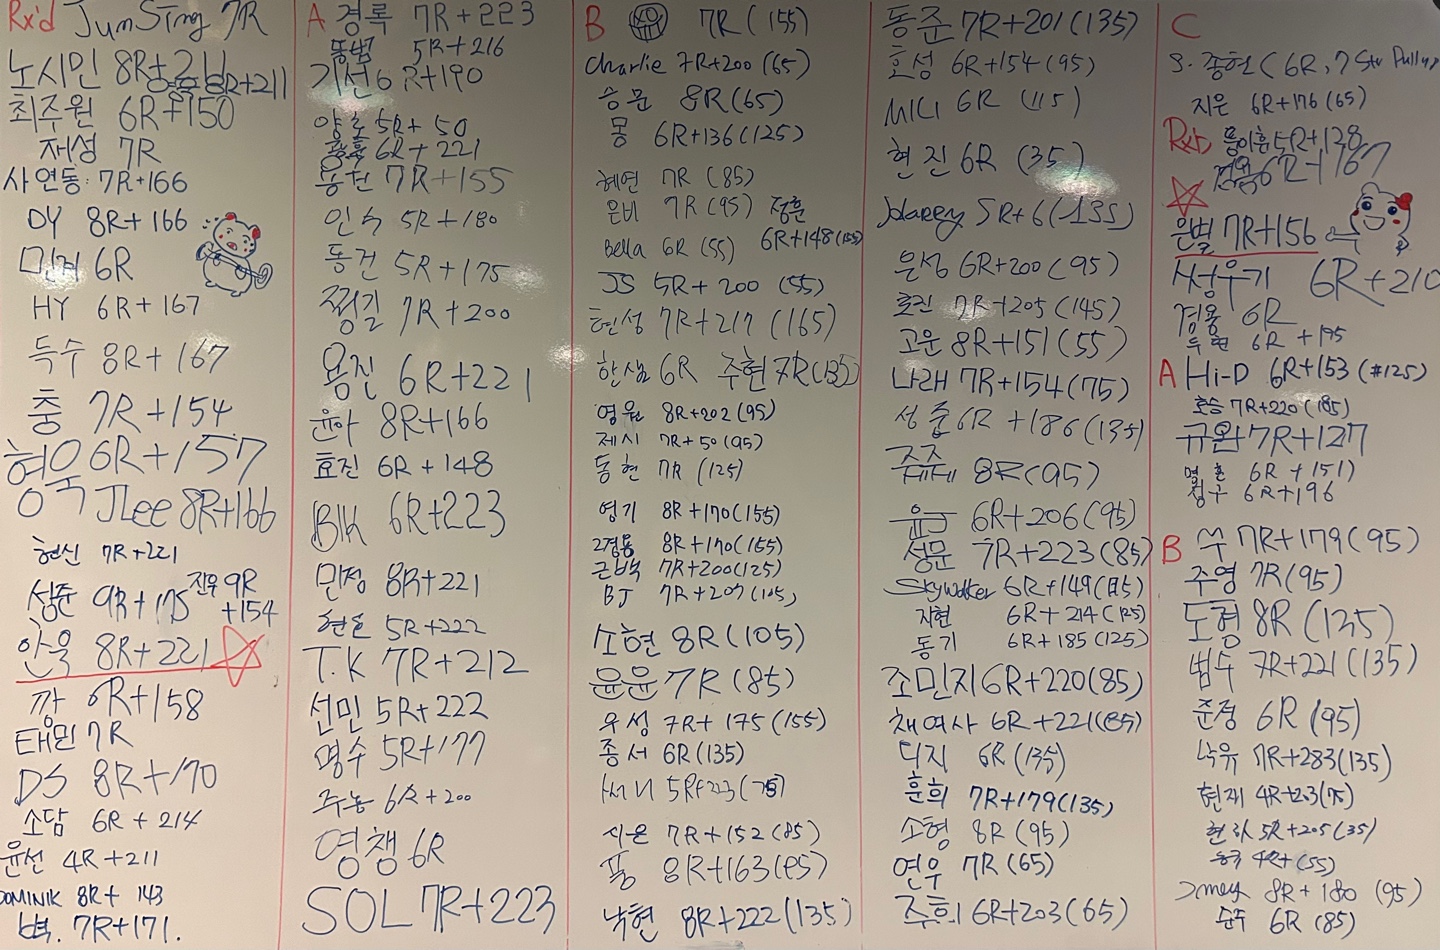 Rx'd JunSing 7R
노시민 8R+211
8R+211
최주원 6R+150
재성 7R
사연동: 7R+166
DY 8R+166
민지 6R
HY 6R+167
득수 8R+167
충 7R+154
형욱 6R+157
JLee 8R+166
현신 7R+221
상준 9R+175
진우 9R
+154
안욱 8R+221
깡 6R+158
태민 7R
DS 8R+170
소담 6R+214
윤선 4R+211
DOMINIK 8R+ 143
벽. 7R+171.
A 경록 7R+223
똥범 5R+216
기선 6R+190
5R+50
6R+221
7R+155
인숙 5R+180
동건 5R+175
찡길 7R+200
용진 6R+221
윤아 8R+166
효진 6R+148
BIK 6R+223
민정 8R+221
5R+222
T.K 7R+212
선민 5R+222
명수 5R+177
6R+200
영챙 6R
SOL 7R+223
B 7R (155)
Charlie 7R+200 (65)
승문 8R (65)
몽 6R+136 (125)
혜연 7R (85)
은비 7R (95)
정훈
6R+148
Bella 6R (55)
JS 5R+200 (55)
현성 7R+217 (165)
한샘 6R
주현 7R (135)
영원 8R+202 (95)
제시 7R+50 (95)
동현 7R (125)
영기 8R+170 (155)
8R+170 (155)
근백 7R+200 (125)
BJ 7R+207 (105)
소현 8R (105)
윤윤 7R (85)
우성 7R+175 (155)
종서 6R (135)
써니
시온 7R+152 (85)
품 8R+163
낙현 8R+222 (135)
동준 7R+201 (135)
효성 6R+154 (95)
6R (115)
현진 6R (35)
5R+6 (135)
은성 6R+200 (95)
효진 7R+205 (145)
고운 8R+151 (55)
나래 7R+154 (75)
성준 6R+186 (135)
8R (95)
6R+206 (95)
성문 7R+223 (85)
Skywalker 6R+149
지현 6R+214 (125)
동기 6R+185 (125)
조민지 6R+220 (85)
채여사 6R+221 (85)
디지 6R (135)
훈희 7R+179 (135)
소형 8R (95)
연우 7R (65)
주희 6R+203 (65)
C
S. 종현 (6R,
지은 6R+176 (65)
Rx'D 5R+138
6R+167
은별 7R+156
서상우기 6R+210
경용 6R
6R+195
A Hi-D 6R+153 (#125)
효승 7R+220 (185)
규완 7R+127
6R+151
성구 6R+196
B 쑤 7R+179 (95)
주영 7R (95)
도형 8R (135)
범수 7R+221 (135)
준정 6R (95)
낙유 7R+283 (135)
현재 4R+203 (75)
5R+205 (35)
(55)
8R+180 (95)
순주 6R (85)